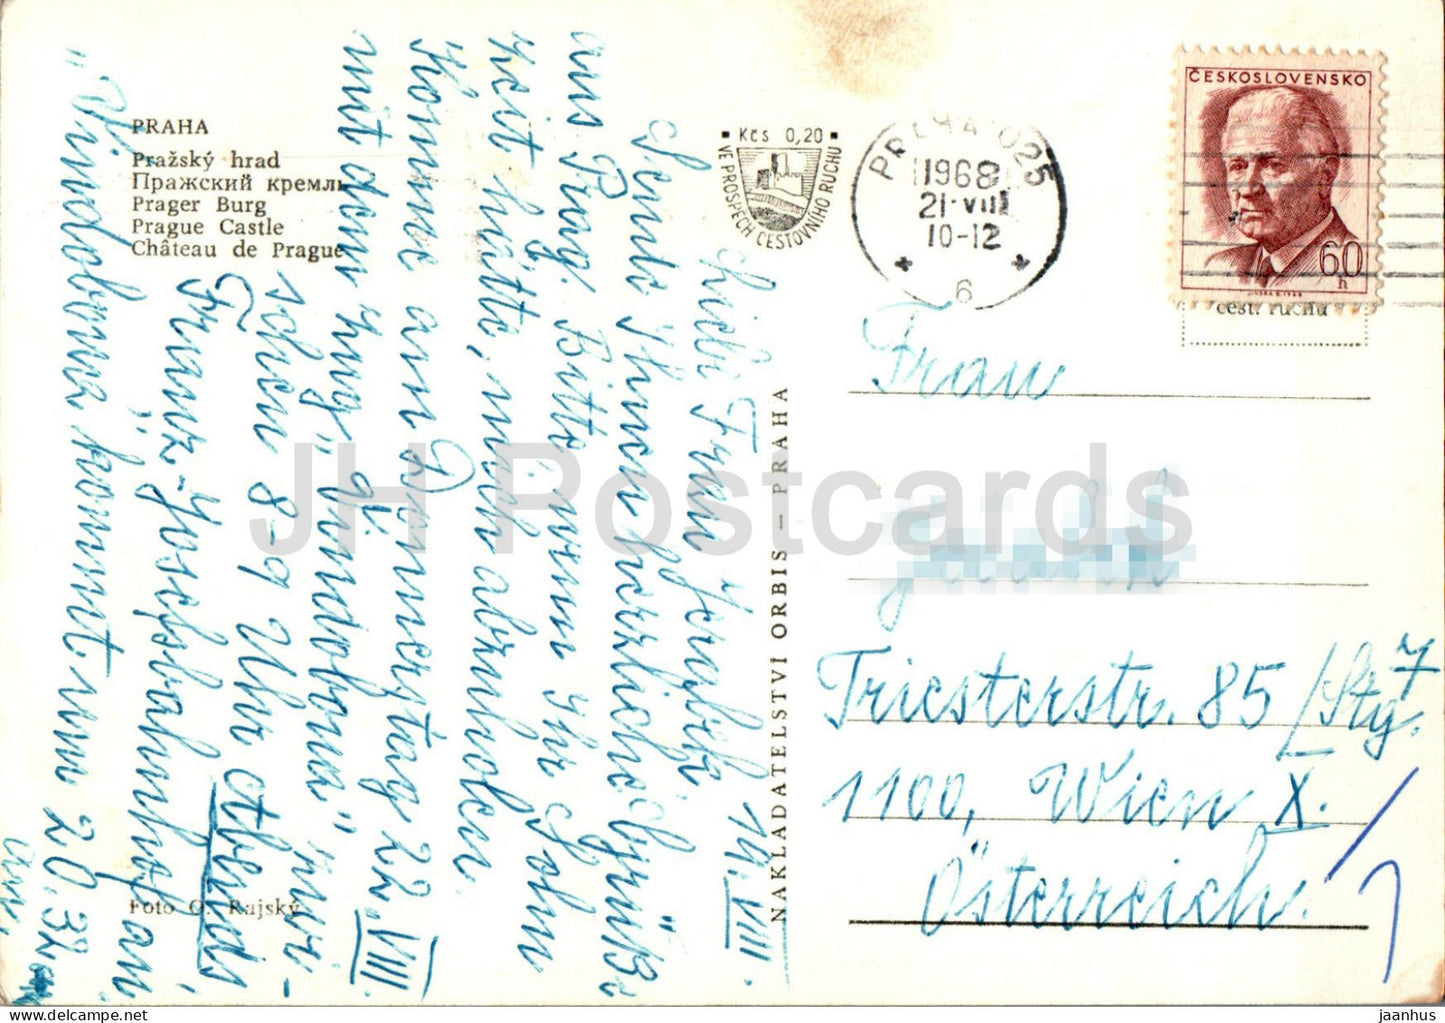 PRAHA
Pražský hrad
Пражский кремль
Prager Burg
Prague Castle
Château de Prague
Foto O. Rajský
NAKLADATELSTVÍ ORBIS — PRAHA
Kčs 0,20
VE PROSPĚCH CESTOVNÍHO RUCHU
PRAHA 025
1968
21.VIII
10-12
6
ČESKOSLOVENSKO
60
h
cest. ruchu
19.VIII
Liebe Frau
Sende Ihnen herzliche Grüße
aus Prag. Bitte wenn Ihr Sohn
Zeit hätte, mich abzuholen.
Komme am Donnerstag 22.VIII.
mit dem Zug "Vindobona"
schon 8-9 Uhr abends
Franz-Josefsbahnhof an.
"Vindobona kommt um 20.32
an.
Frau
Triesterstr. 85/Stg. 7
1100, Wien X.
Österreich.
JH Postcards
jaanhus
https://www.delcampe.net